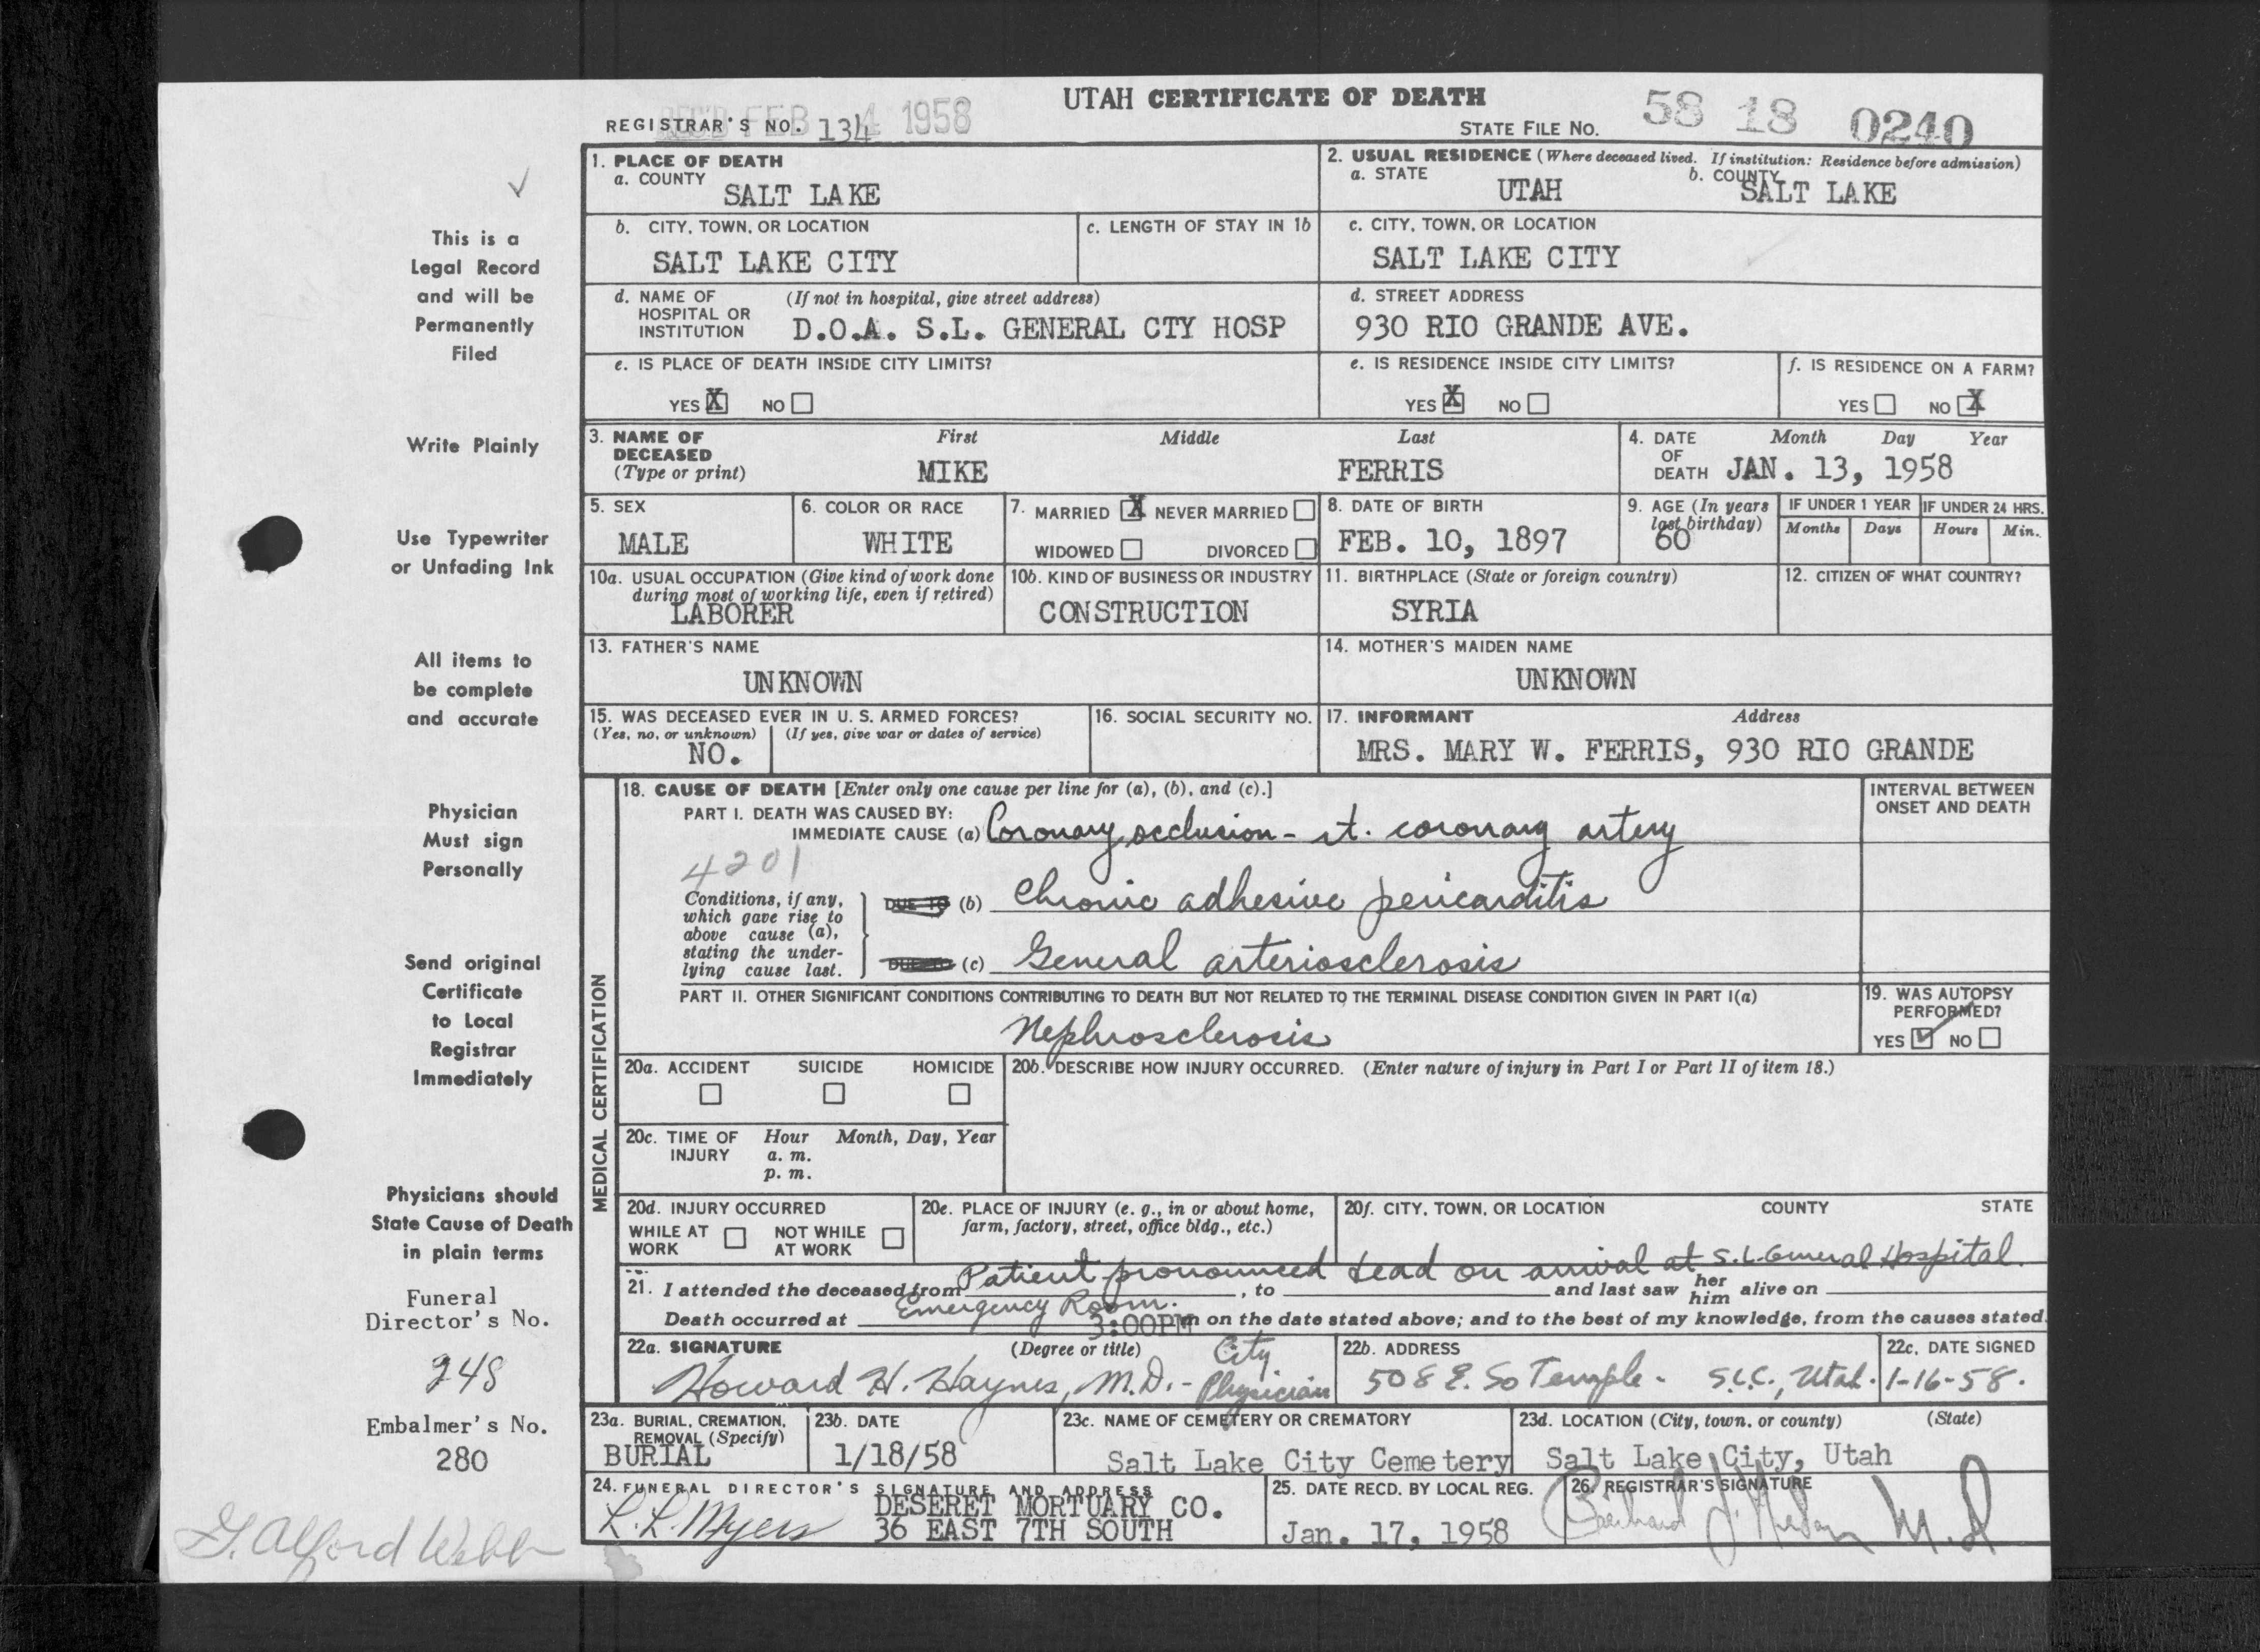 UTAH CERTIFICATE OF DEATH
REC'D FEB 4 1958
REGISTRAR'S NO. 134
STATE FILE NO. 58 18 0240
1. PLACE OF DEATH
a. COUNTY
SALT LAKE
2. USUAL RESIDENCE (Where deceased lived. If institution: Residence before admission)
a. STATE UTAH b. COUNTY SALT LAKE
b. CITY, TOWN, OR LOCATION
SALT LAKE CITY
c. LENGTH OF STAY IN 1b
c. CITY, TOWN, OR LOCATION
SALT LAKE CITY
d. NAME OF HOSPITAL OR INSTITUTION (If not in hospital, give street address)
D.O.A. S.L. GENERAL CTY HOSP
d. STREET ADDRESS
930 RIO GRANDE AVE.
e. IS PLACE OF DEATH INSIDE CITY LIMITS?
YES X NO
e. IS RESIDENCE INSIDE CITY LIMITS?
YES X NO
f. IS RESIDENCE ON A FARM?
YES NO X
3. NAME OF DECEASED (Type or print)
First Middle Last
MIKE FERRIS
4. DATE OF DEATH Month Day Year
JAN. 13, 1958
5. SEX
MALE
6. COLOR OR RACE
WHITE
7. MARRIED X NEVER MARRIED
WIDOWED DIVORCED
8. DATE OF BIRTH
FEB. 10, 1897
9. AGE (In years last birthday)
60
IF UNDER 1 YEAR
Months Days
IF UNDER 24 HRS.
Hours Min.
10a. USUAL OCCUPATION (Give kind of work done during most of working life, even if retired)
LABORER
10b. KIND OF BUSINESS OR INDUSTRY
CONSTRUCTION
11. BIRTHPLACE (State or foreign country)
SYRIA
12. CITIZEN OF WHAT COUNTRY?
13. FATHER'S NAME
UNKNOWN
14. MOTHER'S MAIDEN NAME
UNKNOWN
15. WAS DECEASED EVER IN U. S. ARMED FORCES?
(Yes, no, or unknown) (If yes, give war or dates of service)
NO.
16. SOCIAL SECURITY NO.
17. INFORMANT Address
MRS. MARY W. FERRIS, 930 RIO GRANDE
MEDICAL CERTIFICATION
18. CAUSE OF DEATH [Enter only one cause per line for (a), (b), and (c).]
INTERVAL BETWEEN ONSET AND DEATH
PART I. DEATH WAS CAUSED BY:
IMMEDIATE CAUSE (a) Coronary occlusion - rt. coronary artery
4201
Conditions, if any, which gave rise to above cause (a), stating the underlying cause last.
DUE TO (b) Chronic adhesive pericarditis
DUE TO (c) General arteriosclerosis
PART II. OTHER SIGNIFICANT CONDITIONS CONTRIBUTING TO DEATH BUT NOT RELATED TO THE TERMINAL DISEASE CONDITION GIVEN IN PART I(a)
Nephrosclerosis
19. WAS AUTOPSY PERFORMED?
YES ✓ NO
20a. ACCIDENT SUICIDE HOMICIDE
20b. DESCRIBE HOW INJURY OCCURRED. (Enter nature of injury in Part I or Part II of item 18.)
20c. TIME OF INJURY Hour Month, Day, Year
a. m.
p. m.
20d. INJURY OCCURRED
WHILE AT WORK NOT WHILE AT WORK
20e. PLACE OF INJURY (e. g., in or about home, farm, factory, street, office bldg., etc.)
20f. CITY, TOWN, OR LOCATION COUNTY STATE
Patient pronounced dead on arrival at S.L. General Hospital.
21. I attended the deceased from , to and last saw her him alive on
Emergency Room.
Death occurred at 3:00PM m on the date stated above; and to the best of my knowledge, from the causes stated.
22a. SIGNATURE (Degree or title)
Howard H. Haynes, M.D. - City Physician
22b. ADDRESS
508 E. So Temple - S.L.C., Utah.
22c. DATE SIGNED
1-16-58.
23a. BURIAL, CREMATION, REMOVAL (Specify)
BURIAL
23b. DATE
1/18/58
23c. NAME OF CEMETERY OR CREMATORY
Salt Lake City Cemetery
23d. LOCATION (City, town, or county) (State)
Salt Lake City, Utah
24. FUNERAL DIRECTOR'S SIGNATURE AND ADDRESS
L.L. Myers
DESERET MORTUARY CO.
36 EAST 7TH SOUTH
25. DATE RECD. BY LOCAL REG.
Jan. 17, 1958
26. REGISTRAR'S SIGNATURE
M.D
✓
This is a
Legal Record
and will be
Permanently
Filed
Write Plainly
Use Typewriter
or Unfading Ink
All items to
be complete
and accurate
Physician
Must sign
Personally
Send original
Certificate
to Local
Registrar
Immediately
Physicians should
State Cause of Death
in plain terms
Funeral
Director's No.
248
Embalmer's No.
280
G. Alford Webb